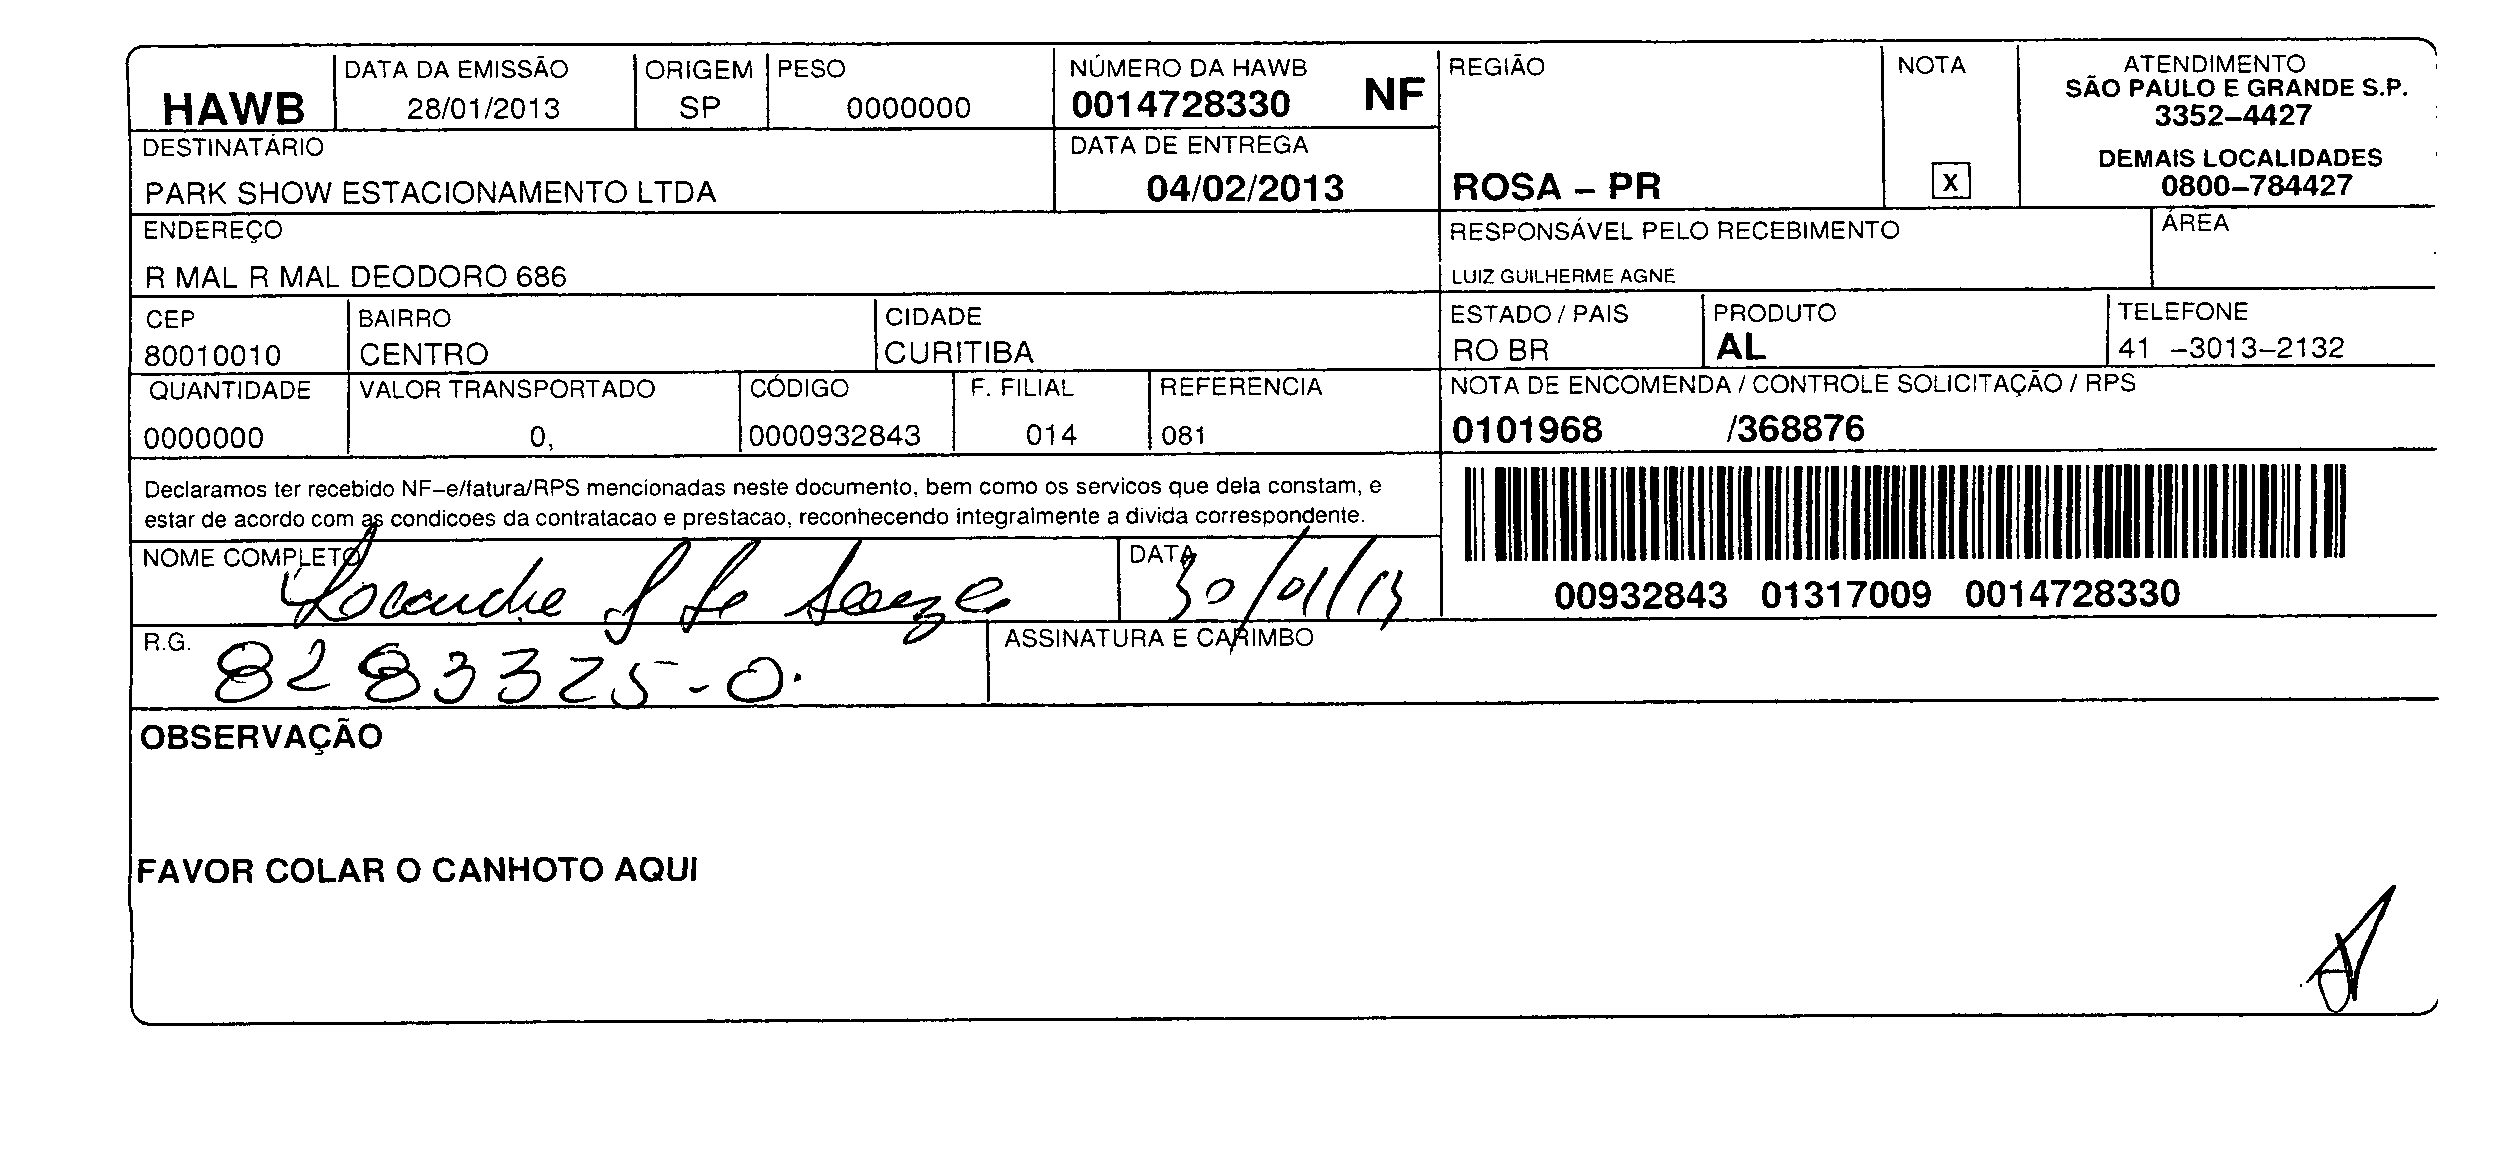 HAWB
DATA DA EMISSÃO
28/01/2013
ORIGEM
SP
PESO
0000000
NÚMERO DA HAWB
0014728330 NF
REGIÃO
ROSA – PR
NOTA
X
ATENDIMENTO
SÃO PAULO E GRANDE S.P.
3352–4427
DEMAIS LOCALIDADES
0800–784427
DESTINATÁRIO
PARK SHOW ESTACIONAMENTO LTDA
DATA DE ENTREGA
04/02/2013
ENDEREÇO
R MAL R MAL DEODORO 686
RESPONSÁVEL PELO RECEBIMENTO
LUIZ GUILHERME AGNE
ÁREA
CEP
80010010
BAIRRO
CENTRO
CIDADE
CURITIBA
ESTADO / PAIS
RO BR
PRODUTO
AL
TELEFONE
41 –3013–2132
QUANTIDADE
0000000
VALOR TRANSPORTADO
0,
CÓDIGO
0000932843
F. FILIAL
014
REFERENCIA
081
NOTA DE ENCOMENDA / CONTROLE SOLICITAÇÃO / RPS
0101968 /368876
Declaramos ter recebido NF–e/fatura/RPS mencionadas neste documento, bem como os servicos que dela constam, e
estar de acordo com as condicoes da contratacao e prestacao, reconhecendo integralmente a divida correspondente.
00932843 01317009 0014728330
NOME COMPLETO
DATA
30/01/13
R.G.
8283325-0.
ASSINATURA E CARIMBO
OBSERVAÇÃO
FAVOR COLAR O CANHOTO AQUI